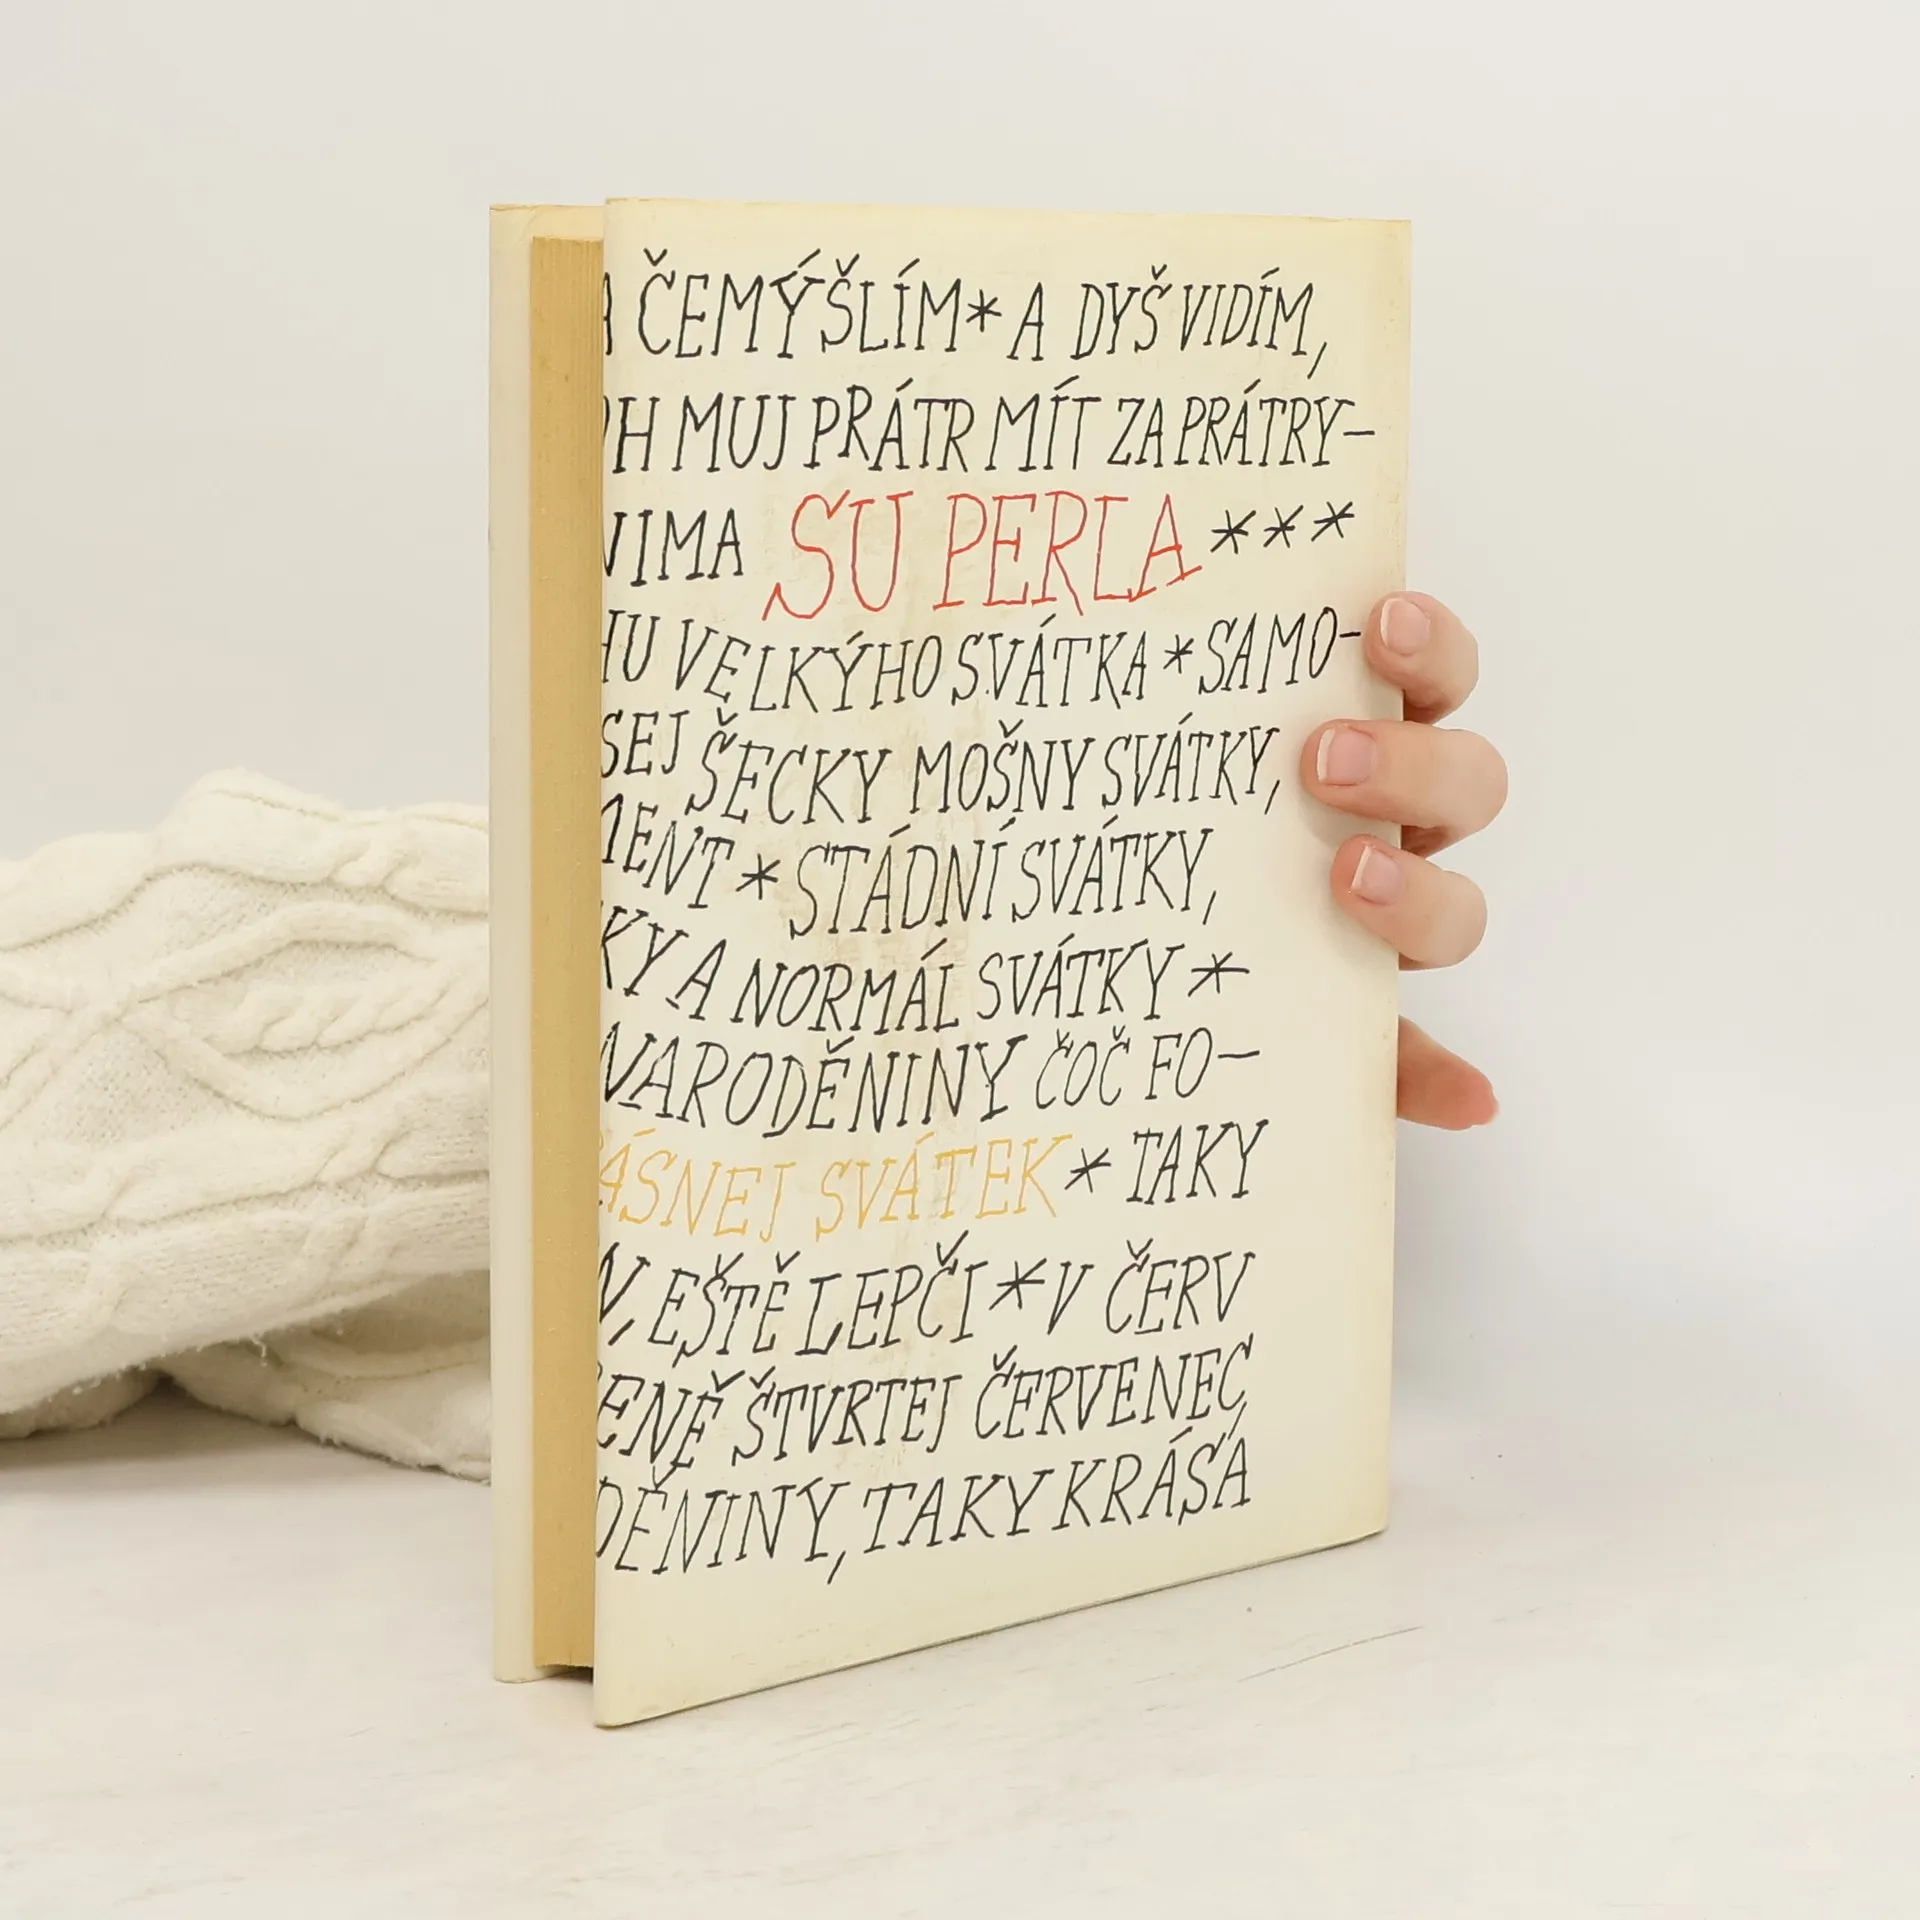 ČEMÝŠLÍM * A DYŠ VIDÍM,
MUJ PRÁTR MÍT ZA PRÁTRY-
SU PERLA * * *
VELKÝHO SVÁTKA * SAMO-
ŠECKY MOŠNY SVÁTKY,
* STÁDNÍ SVÁTKY,
A NORMÁL SVÁTKY *
NARODĚNINY ČOČ FO-
SVÁTEK * TAKY
EŠTĚ LEPČI * V ČERV
ŠTVRTEJ ČERVENEC,
TAKY KRÁSÁ